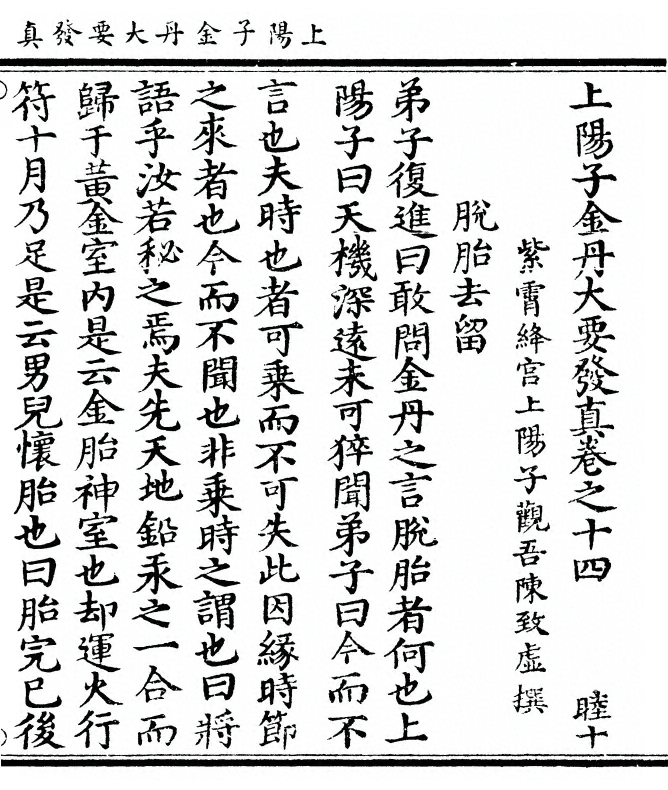 真發要大丹金子陽上
上陽子金丹大要發真卷之十四
睦十
紫霄絳宮上陽子觀吾陳致虛撰
脫胎去留
弟子復進曰敢問金丹之言脫胎者何也上
陽子曰天機深遠未可猝聞弟子曰今而不
言也夫時也者可乘而不可失此因緣時節
之來者也今而不聞也非乘時之謂也曰將
語乎汝若秘之焉夫先天地鉛汞之一合而
歸于黃金室內是云金胎神室也却運火行
符十月乃足是云男兒懷胎也曰胎完已後